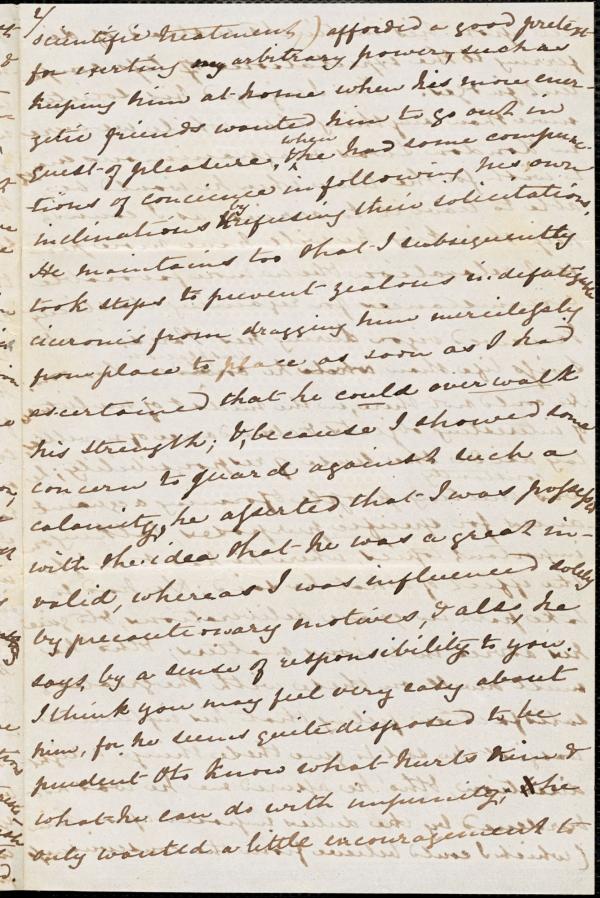 4/
scientific treatment) afforded a good pretext
for exerting my arbitrary power, such as
keeping him at home when his more ener-
getic friends wanted him to go out in
quest of pleasure, & when he had some compunc-
tions of concience in following his own
inclinations & by refusing their solicitations,
He maintains too that I subsequently
took steps to prevent zealous indefatigable
ciceronis from dragging him mercilessly
from place to place as soon as I had
ascertained that he could overwalk
his strength; &, because I showed some
concern to guard against such a
calamity, he asserted that I was possessed
with the idea that he was a great in-
valid, whereas I was influenced solely
by precautionary motives, & also, he
says, by a sense of responsibility to you.
I think you may feel very easy about
him, for he seems quite disposed to be
prudent & to know what hurts him &
what he can do with impunity; & he
only wanted a little encouragement to